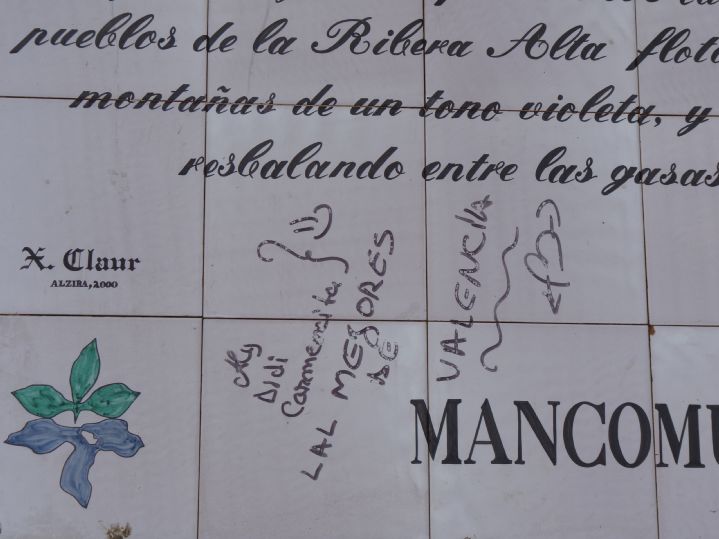 pueblos de la Ribera Alta flot
montañas de un tono violeta, y
resbalando entre las gasas
X. Claur
ALZIRA, 2000
Aly
DIDI
Carmencita
LAL MEJORES
DE
VALENCIA
MANCOMU